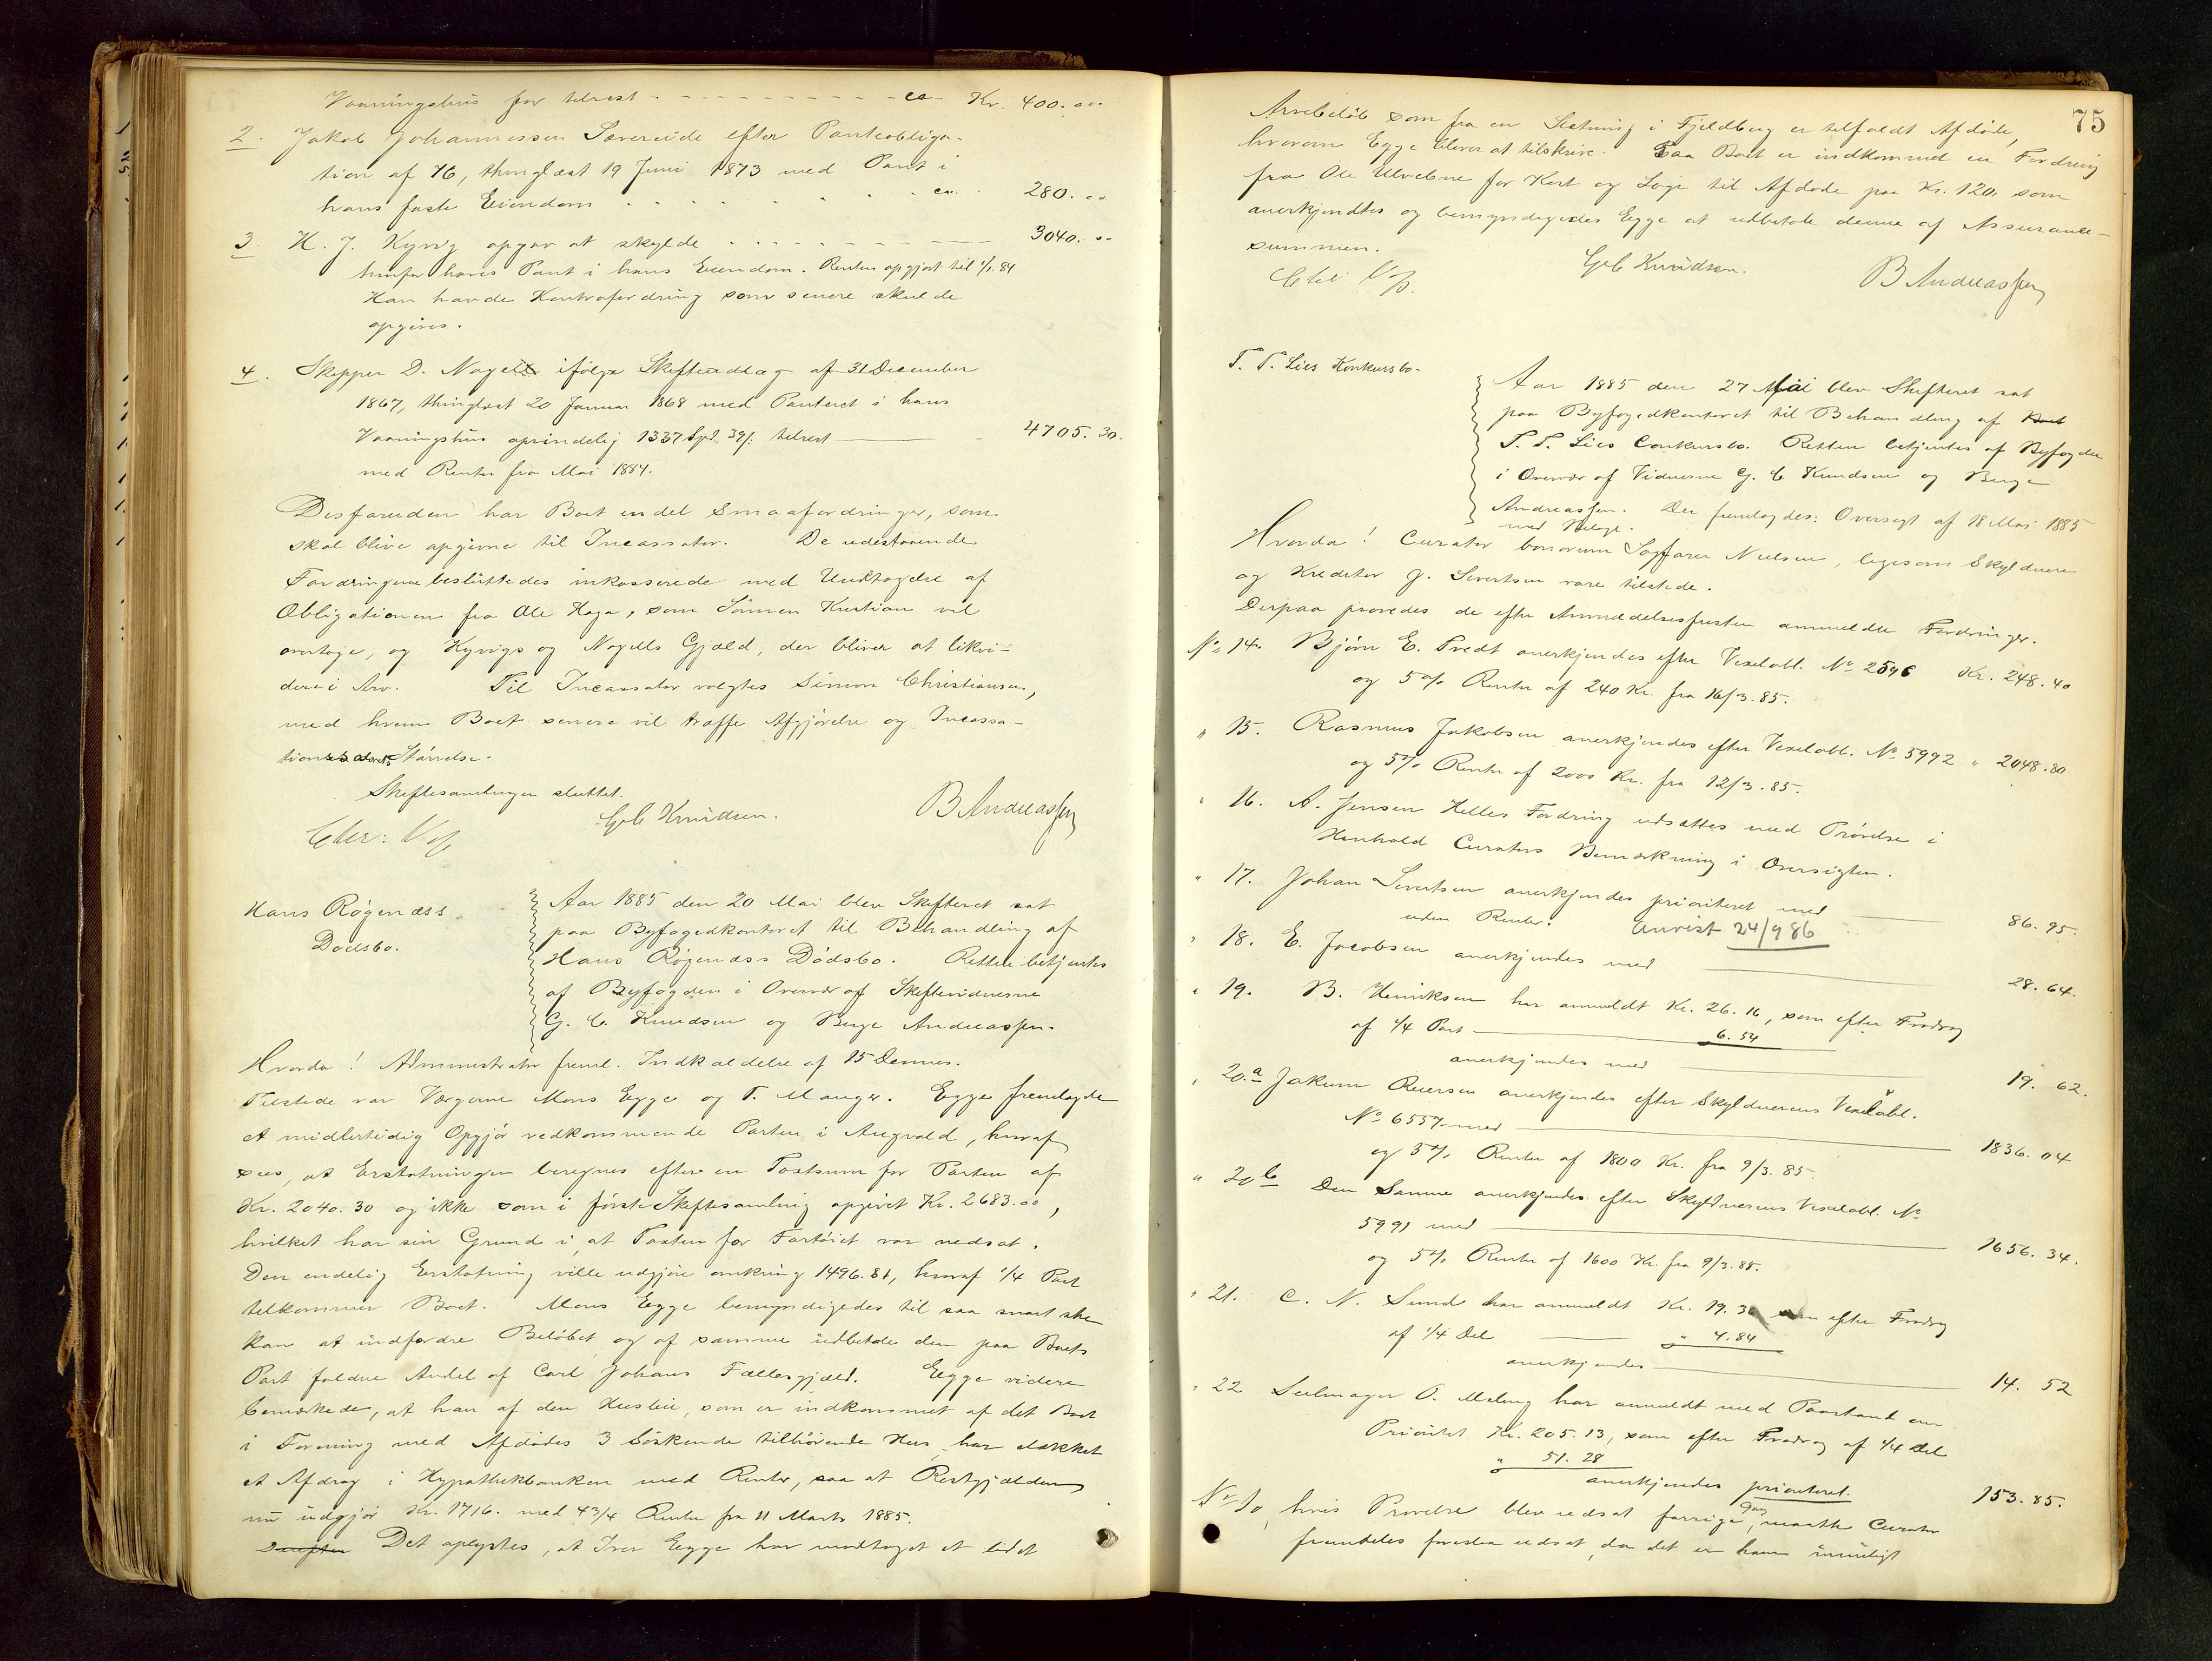 Vaaningshus for tilrest - - - - - - - - - - ca Kr. 400.00
2. Jakob Johannessen Sævereide efter Panteobliga-
tion af 76, thinglæst 19 Juni 1873 med Pant i
hans faste Eiendom . . . . . . . ca. . 280.00
3. H. J. Kyvig opgav at skylde - - - - - - - - 3040.00
hvorfor haves Pant i hans Eiendom. Renten opgjort til 1/1. 84
Han havde Kontrafordring som senere skulde
opgives.
4. Skipper D. Nagell ifølge Skifteudlæg af 31 December
1867, thinglæst 20 Januar 1868 med Panteret i hans
Vaaningshus oprindelig 1337 Spd. 39 β. tilrest - 4705.30.
med Renter fra Mai 1884.
Desforuden har Boet en del Smaafordringer, som
skal blive opgivne til Incassator. De udestaaende
Fordringerne besluttedes inkasserede med Undtagelse af
Obligationen fra Ole Haga, som Sønnen Kristian vil
overtage, og Kyvigs og Nagells Gjæld, der bliver at likvi-
dere i Arv. Til Incassator valgtes Simon Christiansen,
med hvem Boet senere vil træffe Afgjørelse og Incassa-
tions Størrelse.
Skiftesamlingen sluttet.
G C Knudsen. B Andreassen
Hans Røgenæss
Dødsbo.
Aar 1885 den 20 Mai blev Skifteret sat
paa Byfogedkontoret til Behandling af
Hans Røgenæss Dødsbo. Retten betjentes
af Byfogden i Overvær af Skiftevidnerne
G. C. Knudsen og Berge Andreassen.
Hvorda! Administrator freml. Indkaldelse af 15 Dennes.
Tilstede var Værgerne Mons Egge og T. Mauger. Egge fremlagde
et midlertidig Opgjør vedkommende Parten i Augvald, hvoraf
sees, at Erstatningen beregnes efter en Taxtsum for Parten af
Kr. 2040.30 og ikke som i første Skiftesamling opgivet Kr. 2683.00,
hvilket har sin Grund i, at Taxten for Fartøiet var nedsat.
Den endelig Erstatning ville udgjøre omkring 1496.81, hvoraf 1/4 Part
tilkommer Boet. Mons Egge bemyndigedes til saa snart ske
kan at indfordre Beløbet og af samme udbetale den paa Boets
Part faldne Andel af Carl Johans Fællesgjæld. Egge videre
bemærkede, at han af den Husleie, som er indkommet af det Boet
i Forening med Afdødes 3 Søskende tilhørende Hus har dækket
et Afdrag i Hypothekbanken med Renter, saa at Restgjælden
nu udgjør Kr. 1716. med 4 3/4 Rente fra 11 Marts 1885.
Det oplystes, at Iver Egge har modtaget et lidet
75
Arvebeløb som fra en Slægtning i Fjeldberg er tilfaldt Afdøde,
hvorom Egge bliver at tilskrive. Paa Boet er indkommet en Fordring
fra Ole Ulvebne for Kost og Logi til Afdøde paa Kr. 120, som
anerkjendtes og bemyndigedes Egge at udbetale denne af Assurance-
summen.
G C Knudsen. B Andreassen
T. T. Lies Konkursbo.
Aar 1885 den 27 Mai blev Skifteret sat
paa Byfogedkontoret til Behandling af
T. T. Lies Conkursbo. Retten betjentes af Byfogden
i Overvær af Vidnerne G. C. Knudsen og Berge
Andreassen. Der fremlagdes: Oversigt af 18 Mai 1885
med Bilage.
Hvorda! Curator bonorum Sagfører Nielsen, ligesom Skyldner
og Kreditor J. Sivertsen vare tilstede.
Derpaa prøvedes de efter Anmeldelsesfristen anmeldte Fordringer.
No 14. Bjørn E. Tvedt anerkjendes efter Vexelobl. No 2596 Kr. 248.40
og 5% Renter af 240 Kr. fra 16/3.85.
" 15. Rasmus Jakobsen anerkjendes efter Vexelobl. No 5992 " 2048.80
og 5% Renter af 2000 Kr. fra 12/3.85.
" 16. A. Jensen Helles Fordring udsættes med Prøvelse i
Henhold Curators Bemærkning i Oversigten.
" 17. Johan Sivertsen anerkjendes prioriteret med 86.95.
uden Renter. Anvist 24/9 86
" 18. E. Jacobsen anerkjendes med 28.64.
" 19. B. Henriksen har anmeldt Kr. 26.16, som efter Fradrag
af 1/4 Part 6.54
anerkjendes med 19.62.
" 20.a Jakum Reiersen anerkjendes efter Skyldnerens Vexelobl.
No 6557 med 1836.04
og 5% Renter af 1800 Kr. fra 9/3.85.
" 20 b Den Samme anerkjendes efter Skyldnerens Vexelobl. No
5991 med 1656.34.
og 5% Renter af 1600 Kr. fra 9/3.85.
" 21. C. N. Sund har anmeldt Kr. 19.36 som efter Fradrag
af 1/4 Del " 4.84
anerkjendes 14.52
" 22 Seilmager O. Meling har anmeldt med Paastand om
Prioritet Kr. 205.13, som efter Fradrag af 1/4 Del
" 51.28
anerkjendes prioriteret. 153.85.
No 10, hvis Prøvelse blev udsat forrige Gang, maatte Curator
fremdeles foreslaa udsat, da det er ham umuligt